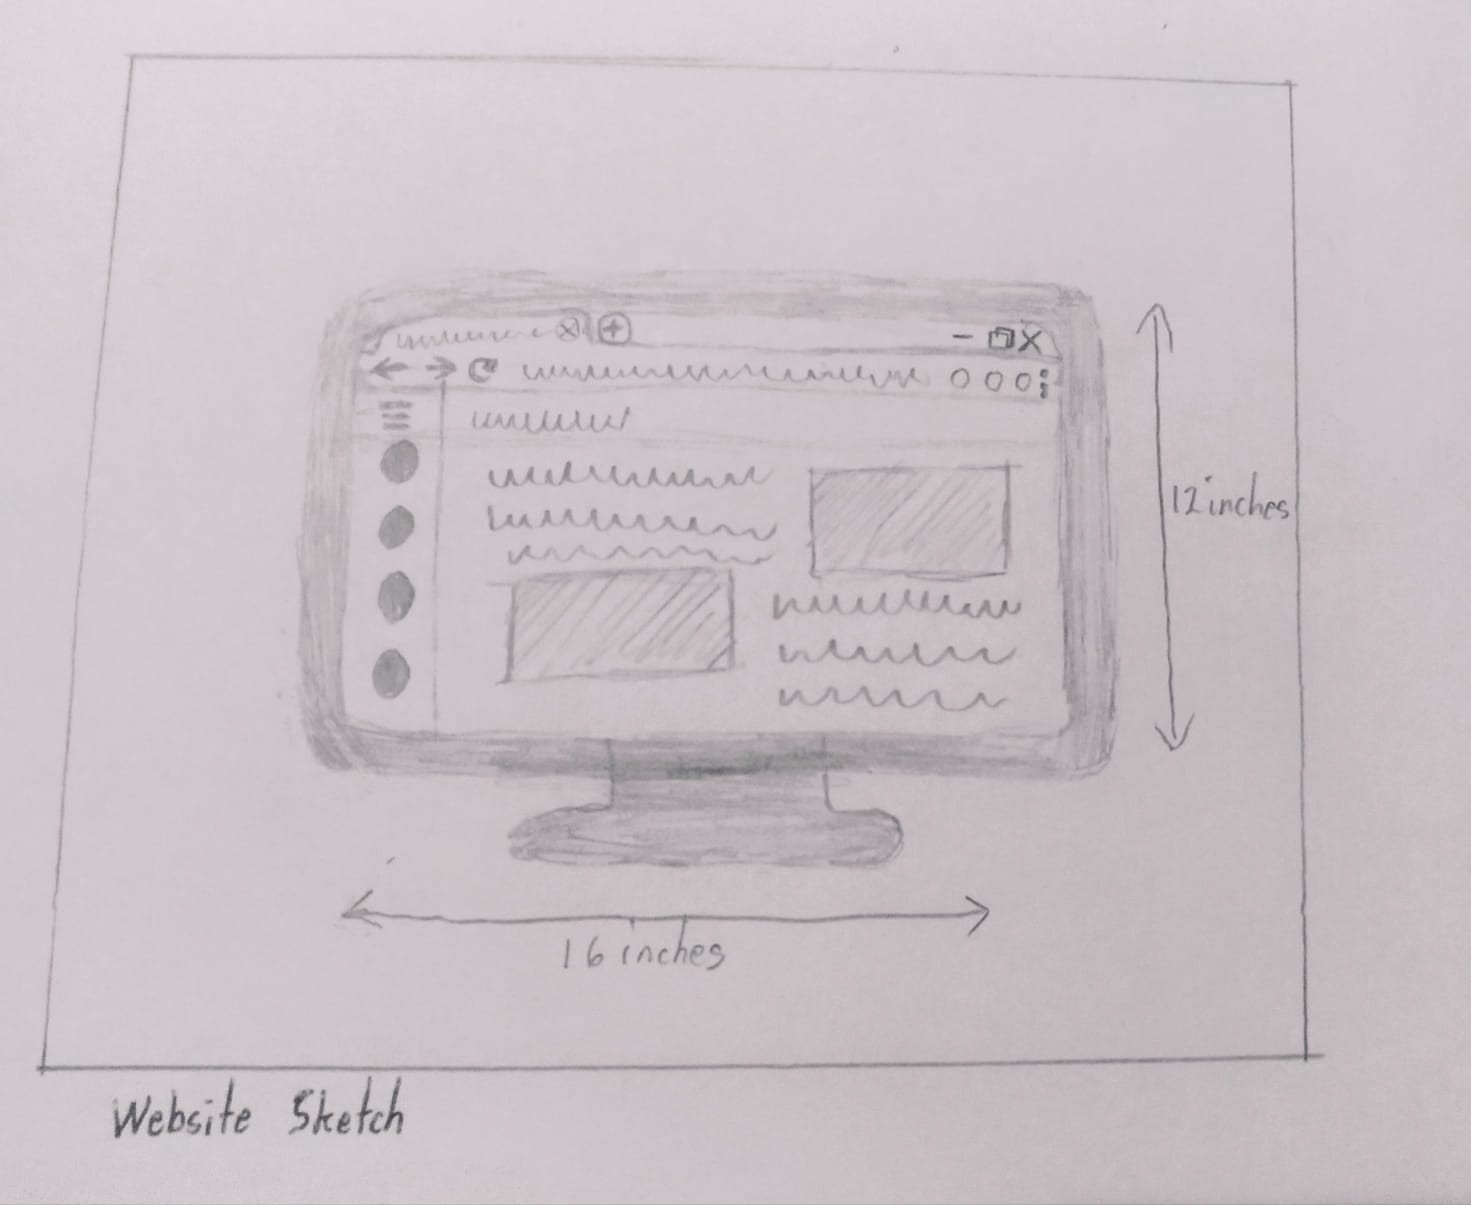 12 inches
16 inches
Website Sketch